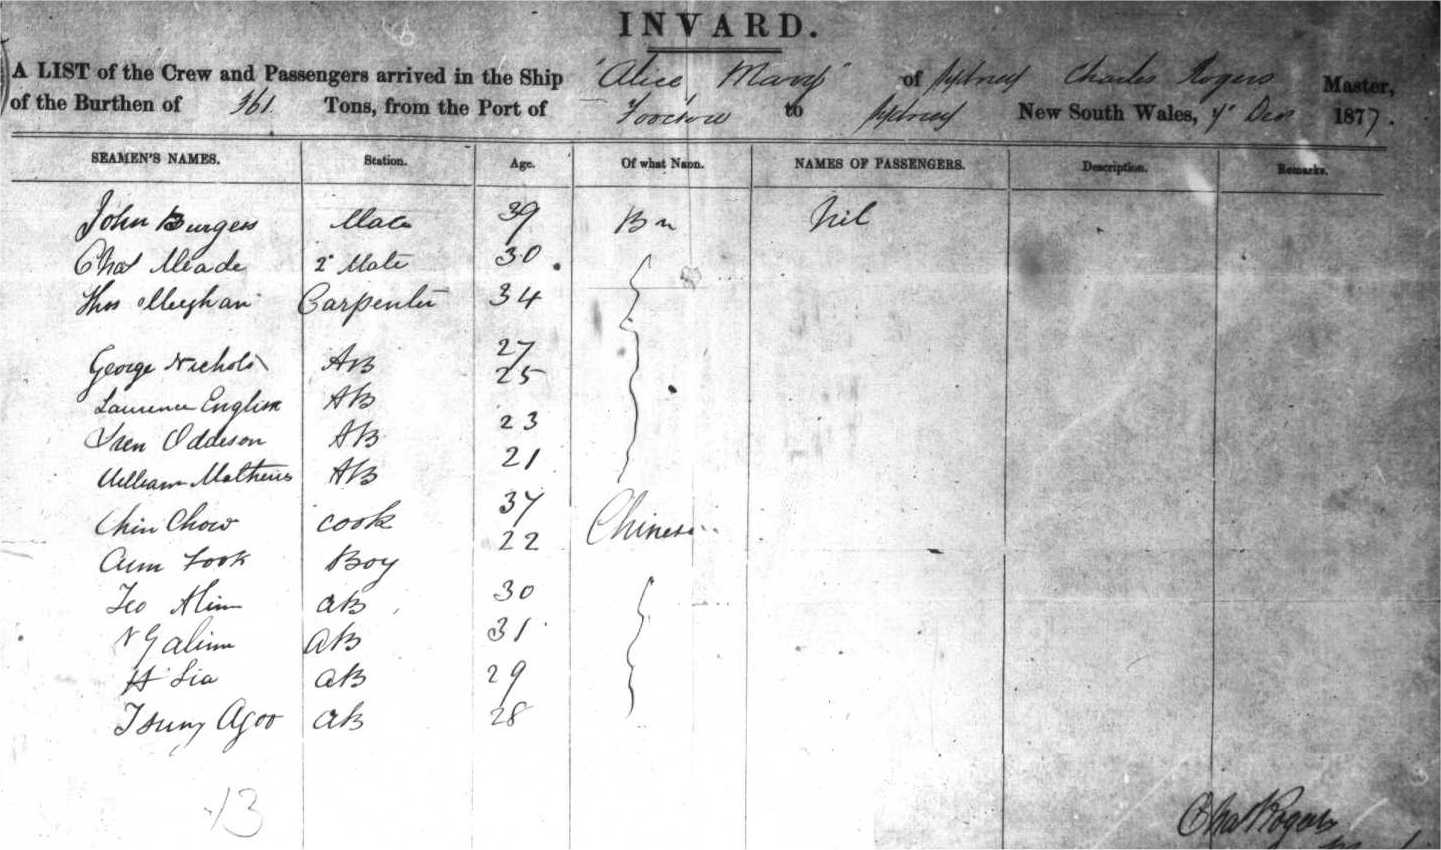 INVARD.
A LIST of the Crew and Passengers arrived in the Ship "Alice Mary" of Sydney Charles Rogers Master,
of the Burthen of 361 Tons, from the Port of Foochow to Sydney New South Wales, 4" Decr 1877.
SEAMEN'S NAMES. Station. Age. Of what Naon. NAMES OF PASSENGERS. Description. Remarks.
John Burgess Mate 39 Bn Nil
Chas Meade 2" Mate 30
Thos Meghan Carpenter 34
George Nichols AB 27
Laurence English AB 25
Oddeson AB 23
William Mathews AB 21
Chin Chow cook 37 Chinese
Aum Fook Boy 22
Alim AB 30
AB 31
Lia AB 29
Agoo AB 28
13
Chas Rogers